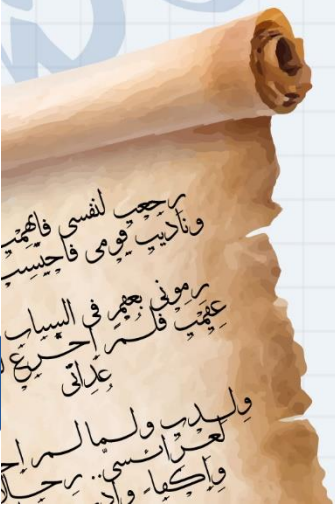 رجعت لنفسي فاتهمت
وناديت قومي فاحتسبت
رموني بعقم في الشباب
عقمت فلم أجزع
عداتي
ولدت ولما لم
لعرائسي.. رجالا
وأكفاء